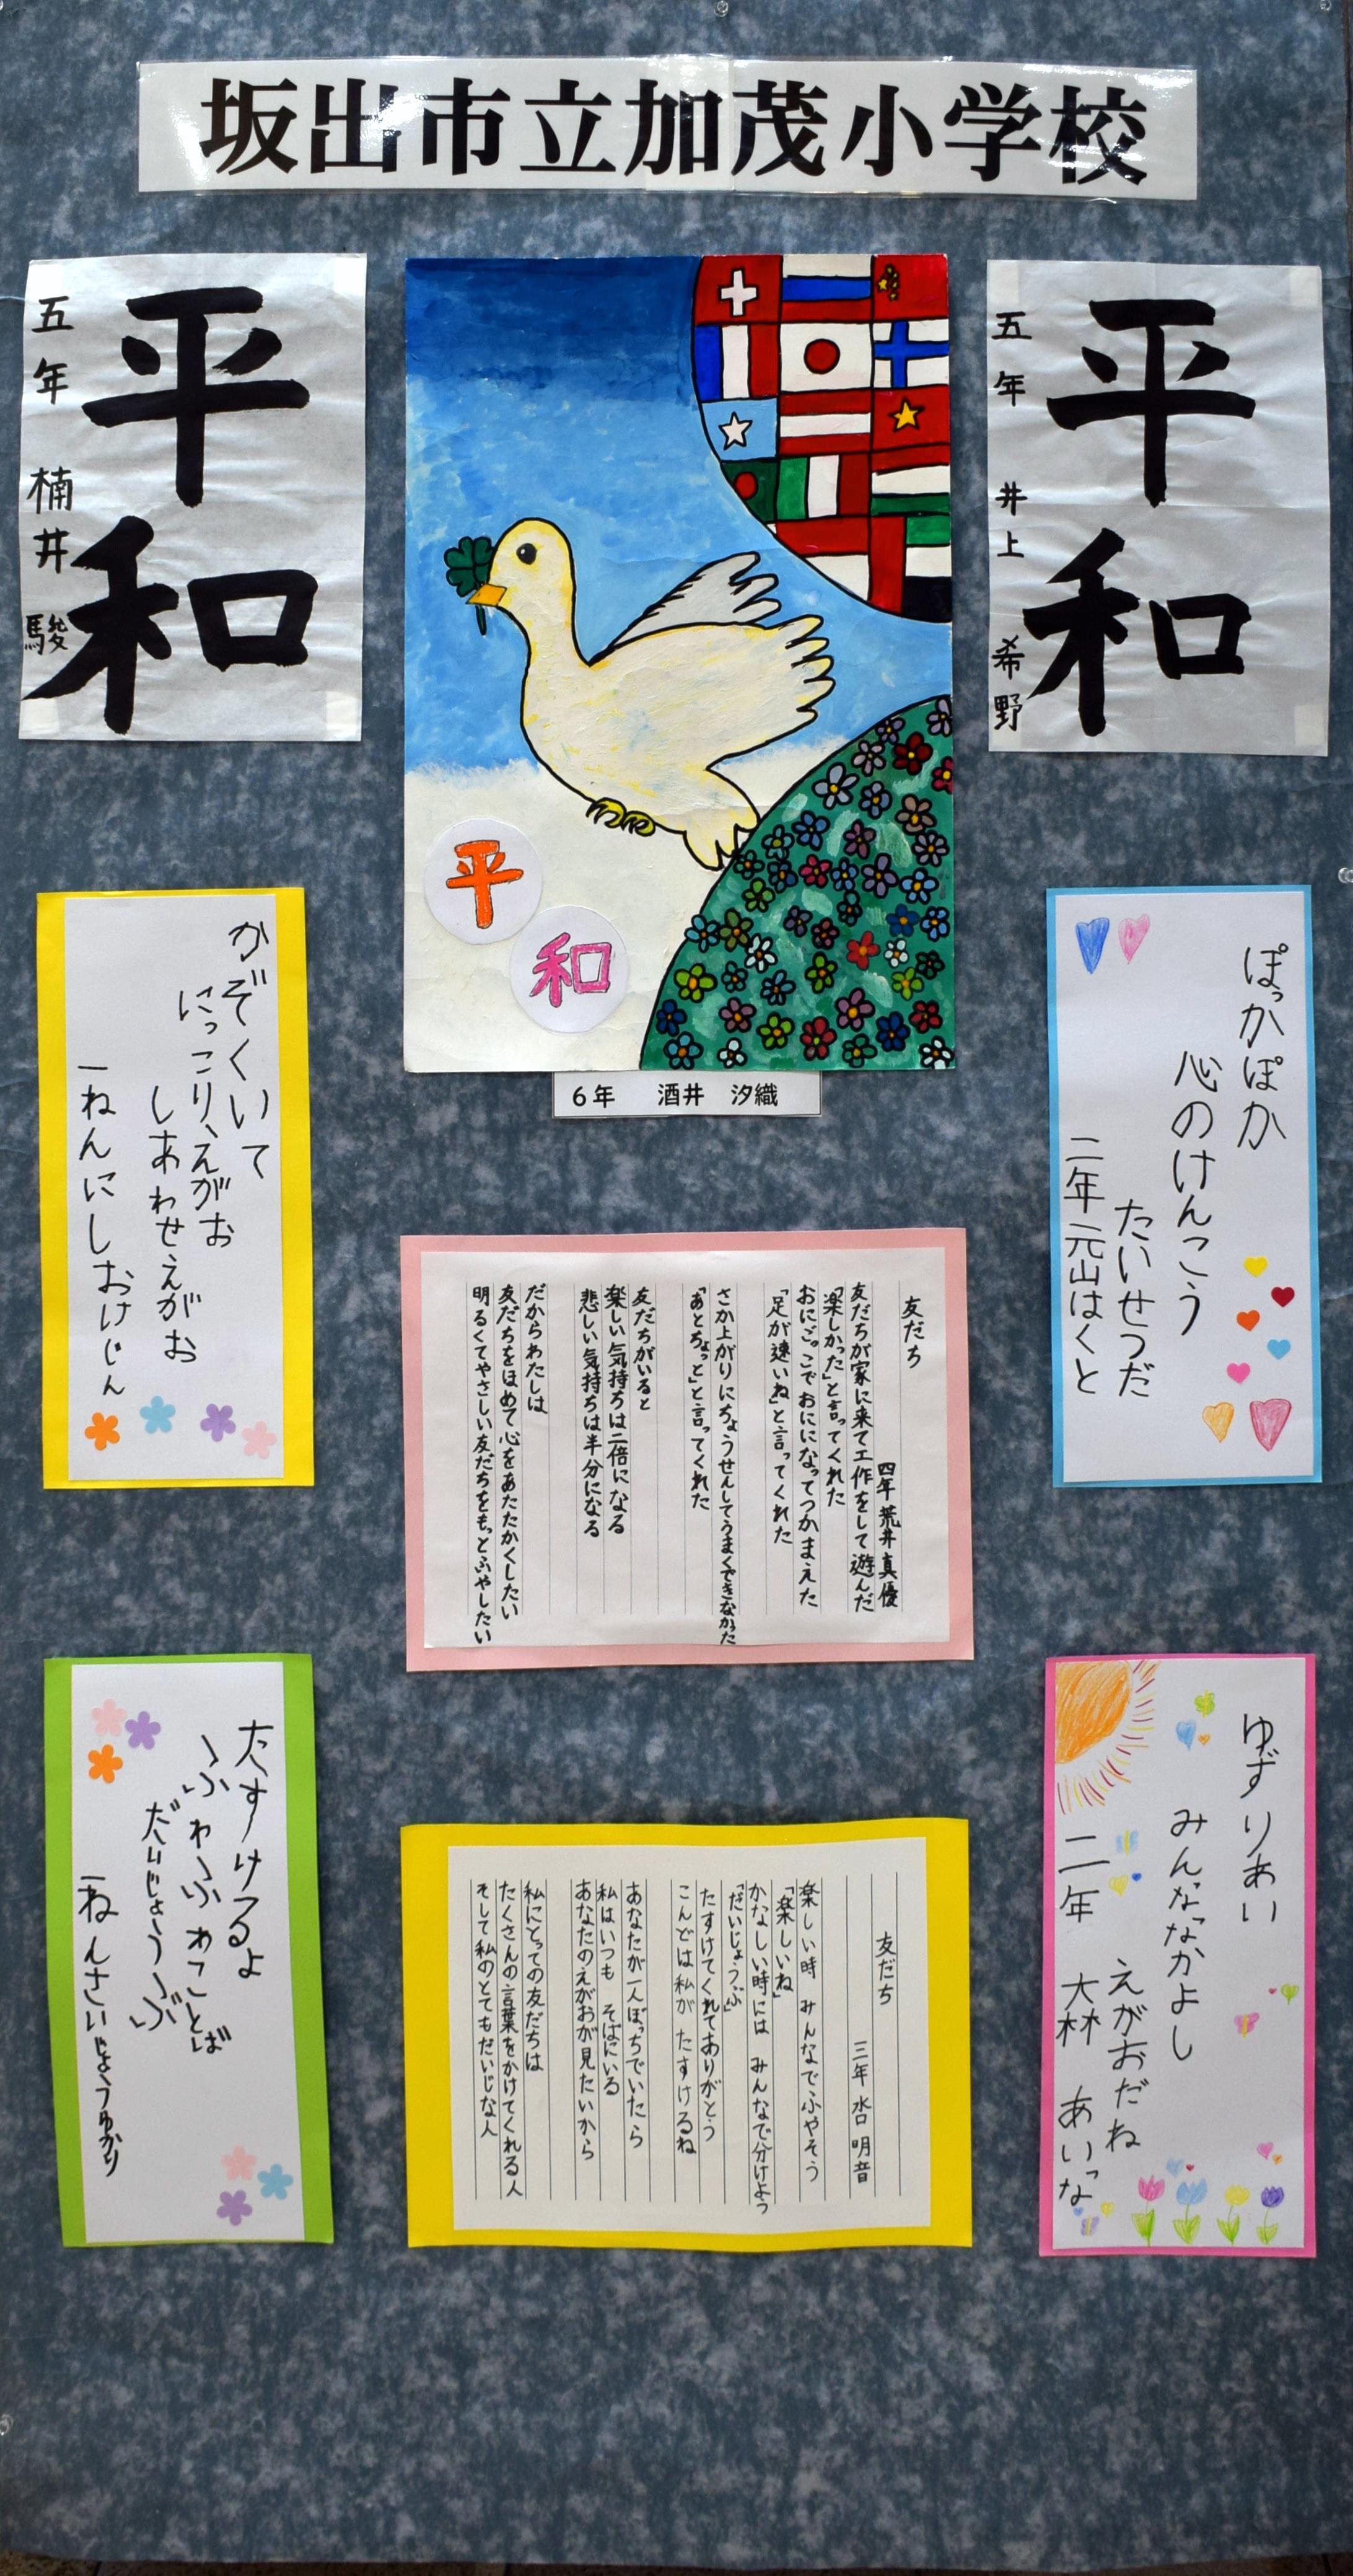 坂出市立加茂小学校
平和
五年 井上 希野
平
和
6年 酒井 汐織
平和
五年 楠井 駿
ぽっかぽか
心のけんこう
たいせつだ
二年 元山はくと
友だち
四年 荒井 真優
友だちが家に来て工作をして遊んだ
「楽しかった」と言ってくれた
おにごっこでおにになってつかまえた
「足が速いね」と言ってくれた
さか上がりにちょうせんしてうまくできなかった
「あとちょっと」と言ってくれた
友だちがいると
楽しい気持ちは二倍になる
悲しい気持ちは半分になる
だからわたしは
友だちをほめて心をあたたかくしたい
明るくてやさしい友だちをもっとふやしたい
かぞくいて
にっこりえがお
しあわせえがお
一ねんにしおけじん
ゆずりあい
みんななかよし
えがおだね
二年 大林 あいな
友だち
三年 水口 明音
楽しい時 みんなでふやそう
「楽しいね」
かなしい時には みんなで分けよう
「だいじょうぶ」
たすけてくれてありがとう
こんどは私が たすけるね
あなたが一人ぼっちでいたら
私はいつも そばにいる
あなたのえがおが見たいから
私にとっての友だちは
たくさんの言葉をかけてくれる人
そして私のとてもだいじな人
たすけるよ
ふわふわことば
だいじょうぶ
一ねんさいじょうゆかり